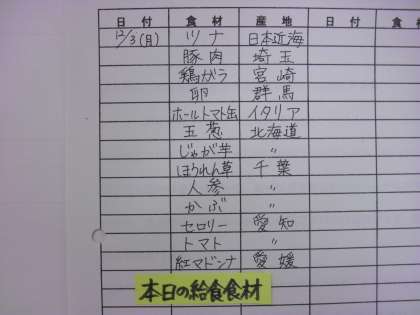 日付 食材 産地 日付 食材
12/3(月) ツナ 日本近海
豚肉 埼玉
鶏ガラ 宮崎
卵 群馬
ホールトマト缶 イタリア
玉葱 北海道
じゃが芋 〃
ほうれん草 千葉
人参 〃
かぶ 〃
セロリー 愛知
トマト 〃
紅マドンナ 愛媛
本日の給食食材